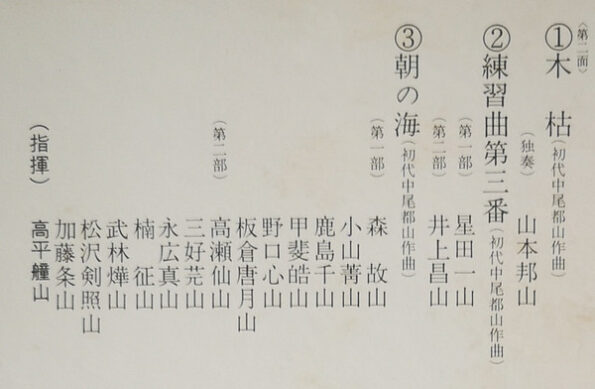 〈第二面〉
①木枯(初代中尾都山作曲)
(独奏) 山本邦山
②練習曲第三番(初代中尾都山作曲)
(第一部) 星田一山
(第二部) 井上昌山
③朝の海(初代中尾都山作曲)
(第一部) 森 故山
小山菁山
鹿島千山
甲斐皓山
野口心山
板倉唐月山
(第二部) 高瀬仙山
三好芫山
永広真山
楠 征山
武林燁山
松沢剣照山
加藤条山
(指揮) 高平艟山